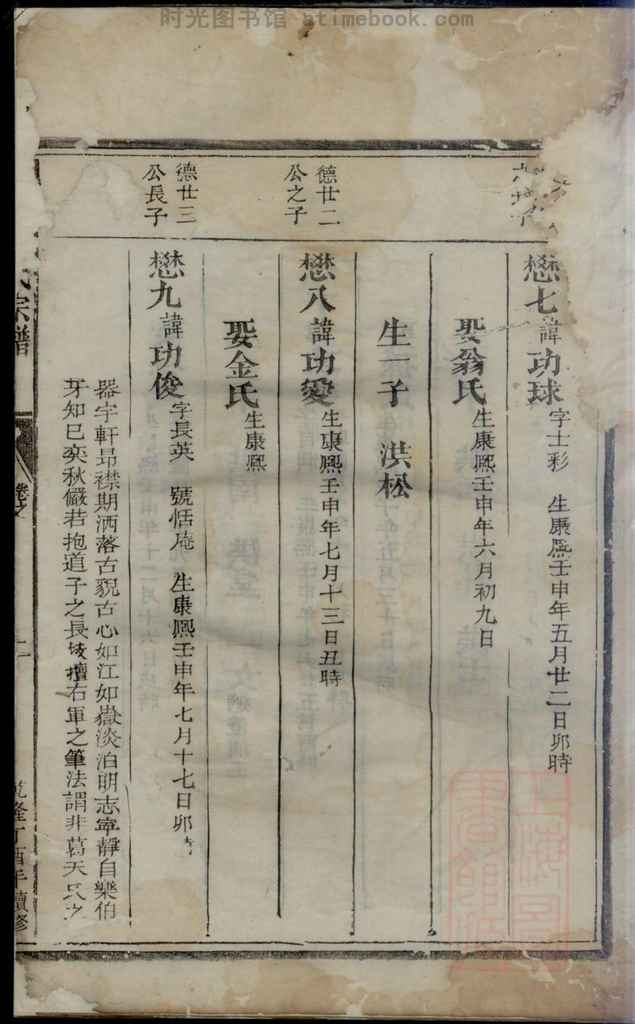 时光图书馆 - timebook.com
懋七諱功球字士彩 生康熙壬申年五月廿二日卯時
娶翁氏生康熙壬申年六月初九日
生一子 洪松
德廿二
公之子
懋八諱功愛生康熙壬申年七月十三日丑時
娶金氏生康熙
德廿三
公長子
懋九諱功俊字長英 號恬庵 生康熙壬申年七月十七日卯
器宇軒昂襟期洒落古貌古心如江如嶽淡泊明志寜靜自樂伯
牙知巳奕秋儼若抱道子之長技擅右軍之筆法謂非葛天氏之
氏宗譜
卷之
乾隆丁酉年續修